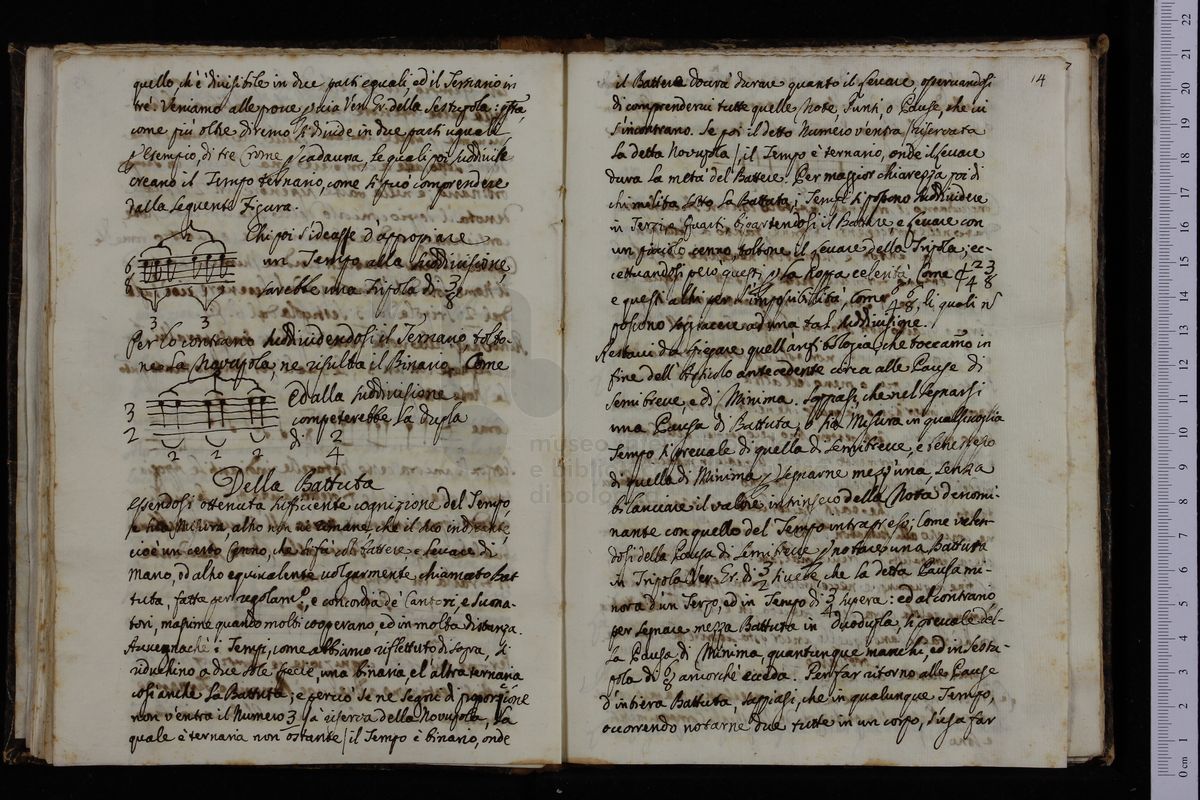 quello ch'è divisibile in due parti eguali, ed il Ternario in
tre. Veniamo alle prove, e sia Ver. Gr. della Sestupola: 
come più oltre diremo si divide in due parti uguali
p esempio, di tre Crome p cadauna, le quali poi suddivise
creano il Tempo ternario, come si può comprendere
dalla seguente Figura.
Chi poi s'ideasse d'appropiare
un Tempo alla suddivisione,
sarebbe una Tripola di 3/8
6
8
3 3
Per lo contrario suddividendosi il Ternario, tolto-
ne la Novupola, ne risulta il Binario. Come
Ed alla suddivisione
competerebbe la Dupla
di 2/4
3
2
2 2 2
Della Battuta
Essendosi ottenuta sufficiente cognizione del Tempo,
e sua Misura altro non ci rimane che il suo indicante,
cioè un certo Cenno, che si fà col battere e levare di
Mano, od altro equivalente volgarmente chiamato Bat
tuta, fatta per regolam.o, e concordia de' Cantori, e Suona-
tori, massime quando molti cooperano, ed in molta distanza.
Avvegnachè i Tempi, come abbiamo riflettuto di sopra, si
riduchino a due sole specie, una binaria e l'altra ternaria
così anche la Battuta; e perciò se ne' segni di proporzione
non v'entra il Numero 3 (a riserva della Novupola, la
quale è ternaria non ostante) il Tempo è binario, onde
14
il Battere dovrà durare quanto il levare osservandosi
di comprendervi tutte quelle Note, Punti, o Pause, che vi
s'incontrano. Se poi il detto Numero v'entra (riservata
la detta Novupola), il Tempo è ternario, onde il levare
dura la metà del Battere. Per maggior chiarezza poi di
chi milita sotto la Battuta, i Tempi si possono suddividere
in Terzi, e Quarti, bipartendosi il Battere e levare con
un picciolo cenno, toltone il levare della Tripola; ec-
cettuandosi però questi p la troppa celerità, Come ₵ 2/4 3/8
e questi altri per l'impossibilità, Come li quali n
possono soggiacere ad una tal suddivisione.
Restavi da spiegare quell'anfibologia, che toccamo in
fine dell'Articolo antecedente circa alle Pause di
Semibreve, e di Minima. Sappiasi, che nel segnarsi
una Pausa di Battuta, o sia Misura in qualsivoglia
Tempo si prevale di quella di Semibreve, e bene spesso
di quella di Minima p segnarne mezz'una, senza
bilanciare il valore intrinseco della Nota denomi-
nante con quello del Tempo intrapreso; Come valen-
dosi della Pausa di Semibreve p notare una Battuta
in Tripola Ver. Gr. di 3/2 si vede, che la detta Pausa mi-
nora d'un Terzo, ed in Tempo di 3/4 supera: ed al contrario
per segnare mezza Battuta in Duodupla, si prevale del-
la Pausa di Minima, quantunque manchi, ed in Sestu-
pola di 6/8 ancorchè ecceda. Per far ritorno alle Pause
d'intiera Battuta, sappiasi, che in qualunque Tempo,
occorrendo notarne due tutte in un corpo, s'usa far